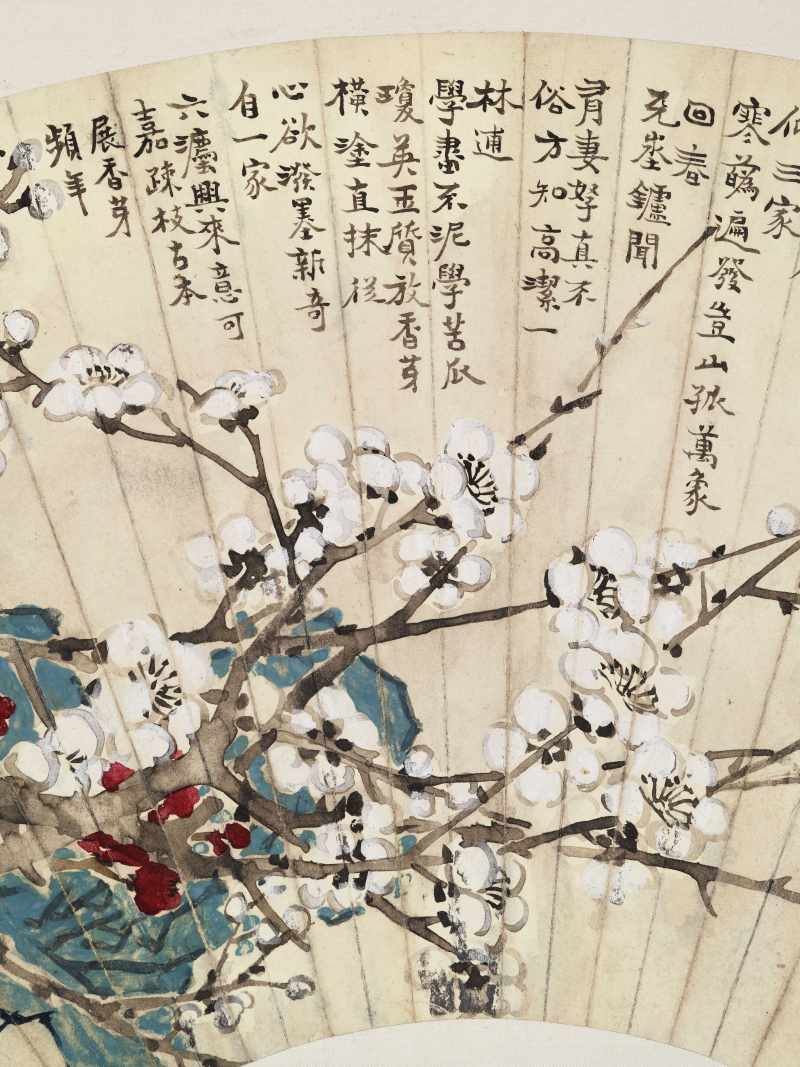 三家
寒蘤遍發豈山孤萬象
回春
鑪聞
妻孥真不
俗方知高潔一
林逋
學畫不泥學苦瓜
瓊英玉質放香芽
橫塗直抹從
心欲潑墨新奇
自一家
六灋興來意可
嘉疎枝古本
展香芽
頻年